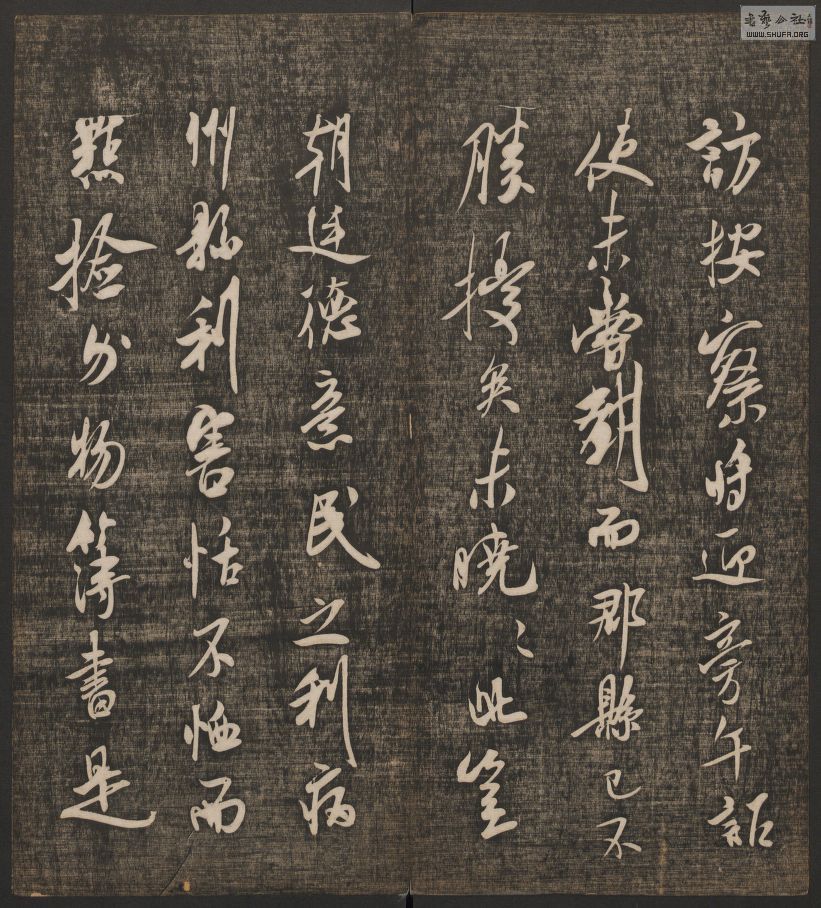 訪按察將迎旁午詎
使未嘗對而郡縣已不
勝擾矣未曉〻此豈
朝廷德意民之利病
州縣利害恬不恤而
點撿分物簿書是
WWW.SHUFA.ORG